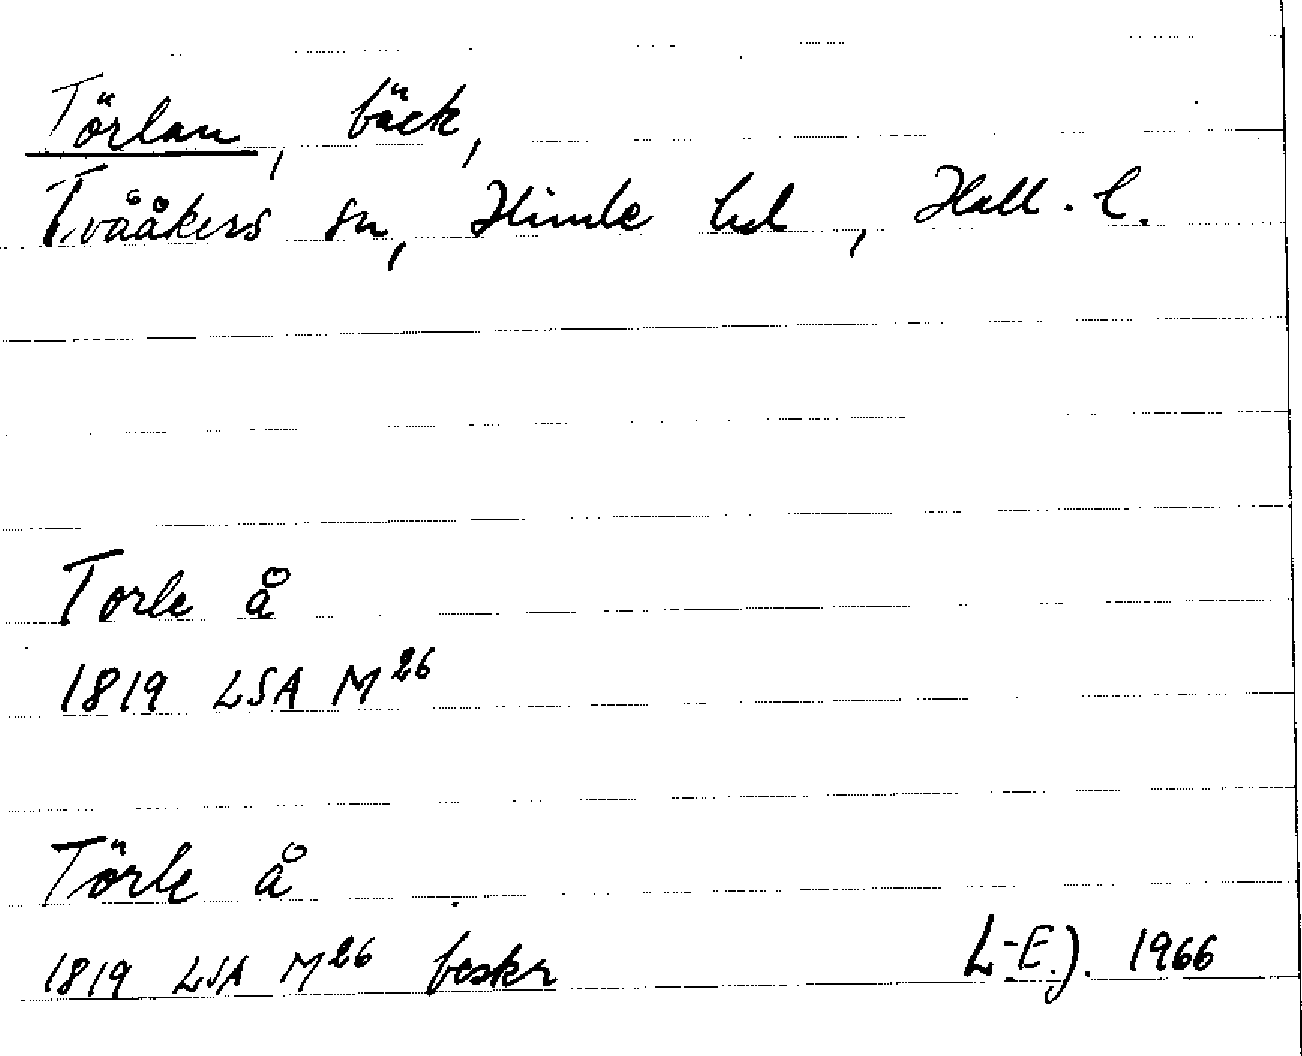 Törlan, bäck,
Tvååkers sn, Himle hd, Hall. l.
Torle å
1819 LSA M26
Törle å
1819 LSA M26 beskr L-E.J. 1966